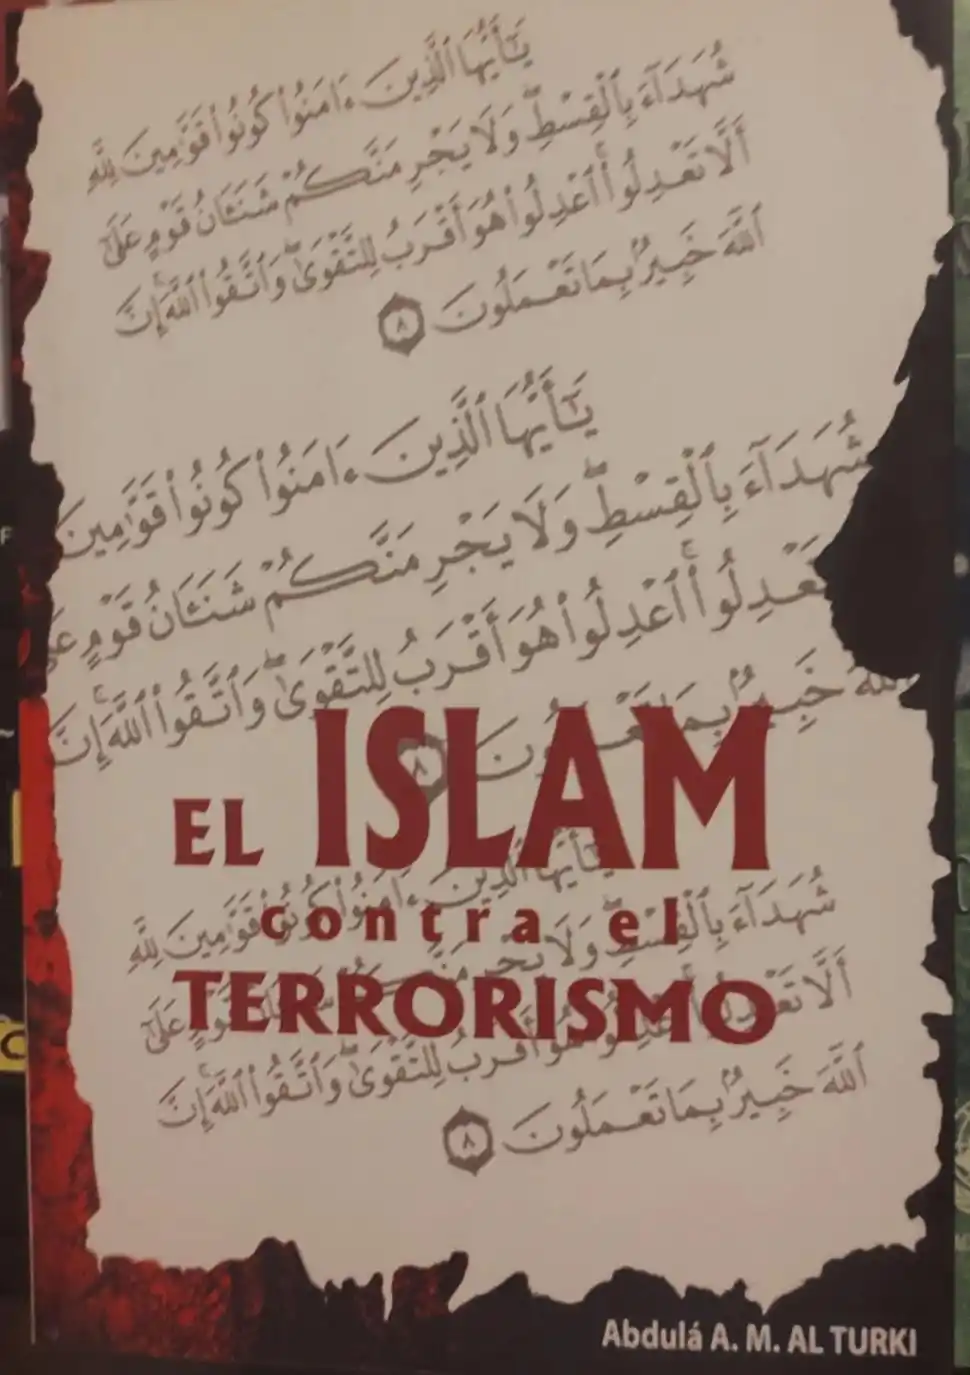 يَٰٓأَيُّهَا ٱلَّذِينَ ءَامَنُوا۟ كُونُوا۟ قَوَّٰمِينَ لِلَّهِ
شُهَدَآءَ بِٱلْقِسْطِ ۖ وَلَا يَجْرِمَنَّكُمْ شَنَـَٔانُ قَوْمٍ عَلَىٰٓ
أَلَّا تَعْدِلُوا۟ ۚ ٱعْدِلُوا۟ هُوَ أَقْرَبُ لِلتَّقْوَىٰ ۖ وَٱتَّقُوا۟ ٱللَّهَ ۚ إِنَّ
ٱللَّهَ خَبِيرٌۢ بِمَا تَعْمَلُونَ ٨
يَٰٓأَيُّهَا ٱلَّذِينَ ءَامَنُوا۟ كُونُوا۟ قَوَّٰمِينَ
شُهَدَآءَ بِٱلْقِسْطِ ۖ وَلَا يَجْرِمَنَّكُمْ شَنَـَٔانُ قَوْمٍ
تَعْدِلُوا۟ ۚ ٱعْدِلُوا۟ هُوَ أَقْرَبُ لِلتَّقْوَىٰ ۖ وَٱتَّقُوا۟ ٱللَّهَ ۚ إِنَّ
ٱللَّهَ خَبِيرٌۢ بِمَا تَعْمَلُونَ ٨
EL ISLAM
يَٰٓأَيُّهَا ٱلَّذِينَ ءَامَنُوا۟ كُونُوا۟ قَوَّٰمِينَ لِلَّهِ
contra el
شُهَدَآءَ بِٱلْقِسْطِ ۖ وَلَا يَجْرِمَنَّكُمْ شَنَـَٔانُ قَوْمٍ عَلَىٰٓ
TERRORISMO
أَلَّا تَعْدِلُوا۟ ۚ ٱعْدِلُوا۟ هُوَ أَقْرَبُ لِلتَّقْوَىٰ ۖ وَٱتَّقُوا۟ ٱللَّهَ ۚ إِنَّ
ٱللَّهَ خَبِيرٌۢ بِمَا تَعْمَلُونَ ٨
Abdulá A. M. AL TURKI